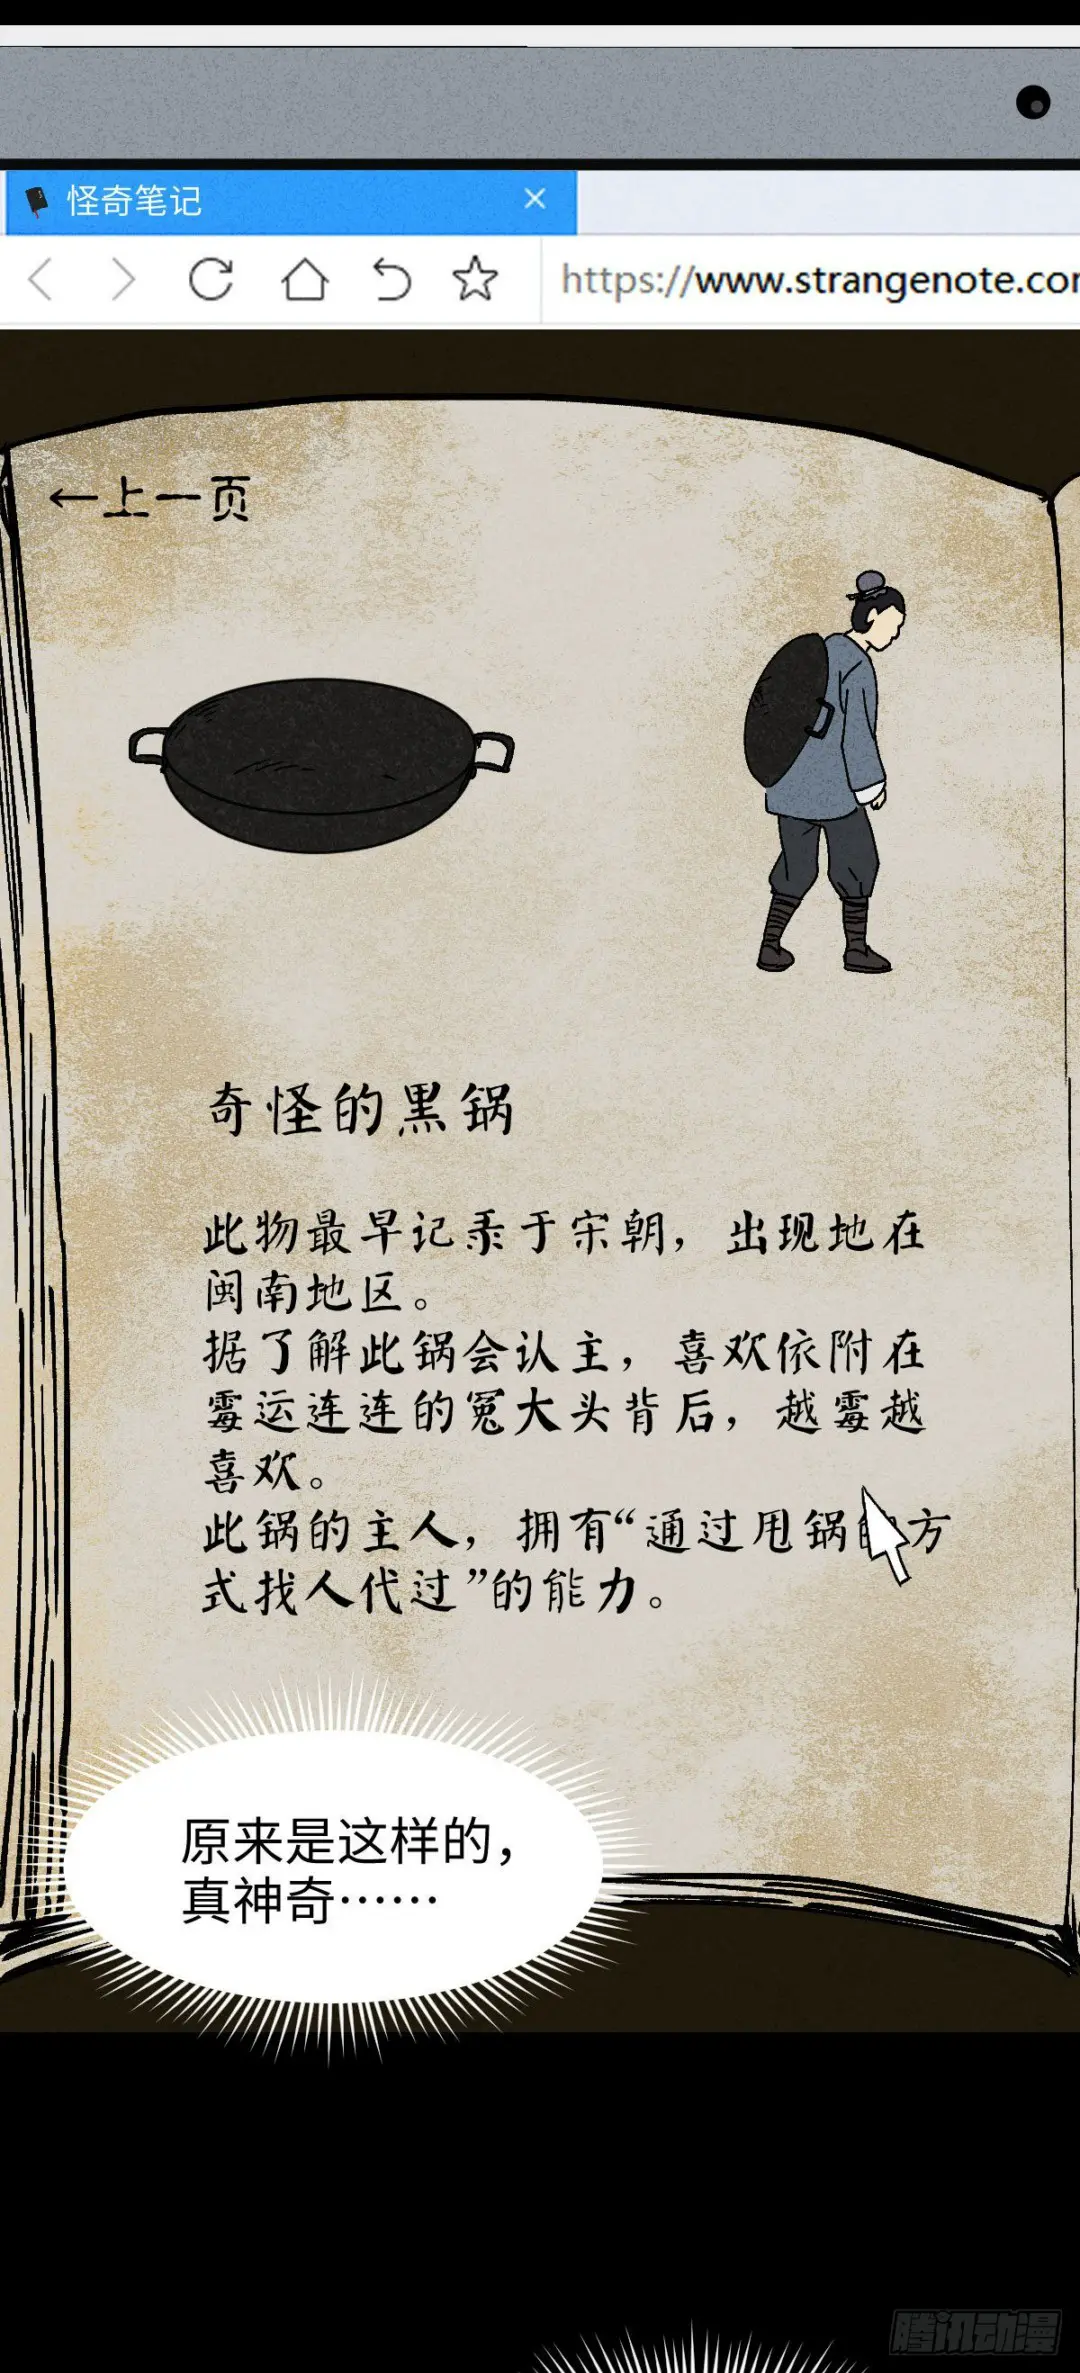 怪奇笔记
https://www.strangenote.co
←上一页
奇怪的黑锅
此物最早记录于宋朝，出现地在
闽南地区。
据了解此锅会认主，喜欢依附在
霉运连连的冤大头背后，越霉越
喜欢。
此锅的主人，拥有“通过甩锅的方
式找人代过”的能力。
原来是这样的，
真神奇……
腾讯动漫